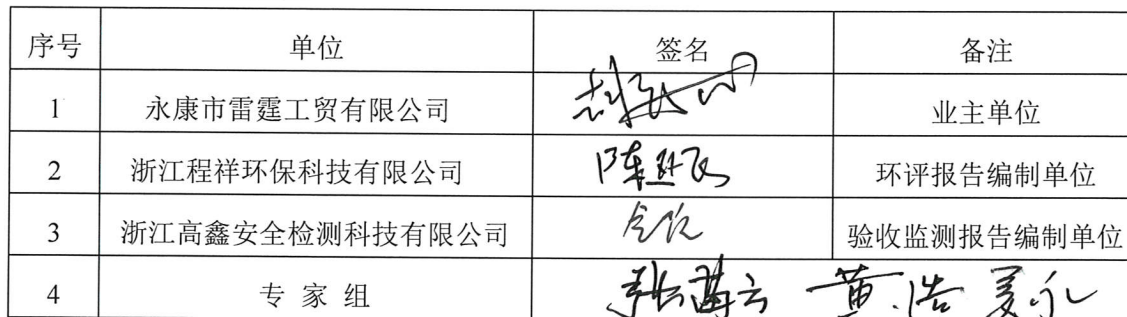 序号 单位 签名 备注
1 永康市雷霆工贸有限公司 业主单位
2 浙江程祥环保科技有限公司 环评报告编制单位
3 浙江高鑫安全检测科技有限公司 验收监测报告编制单位
4 专家组 黄浩